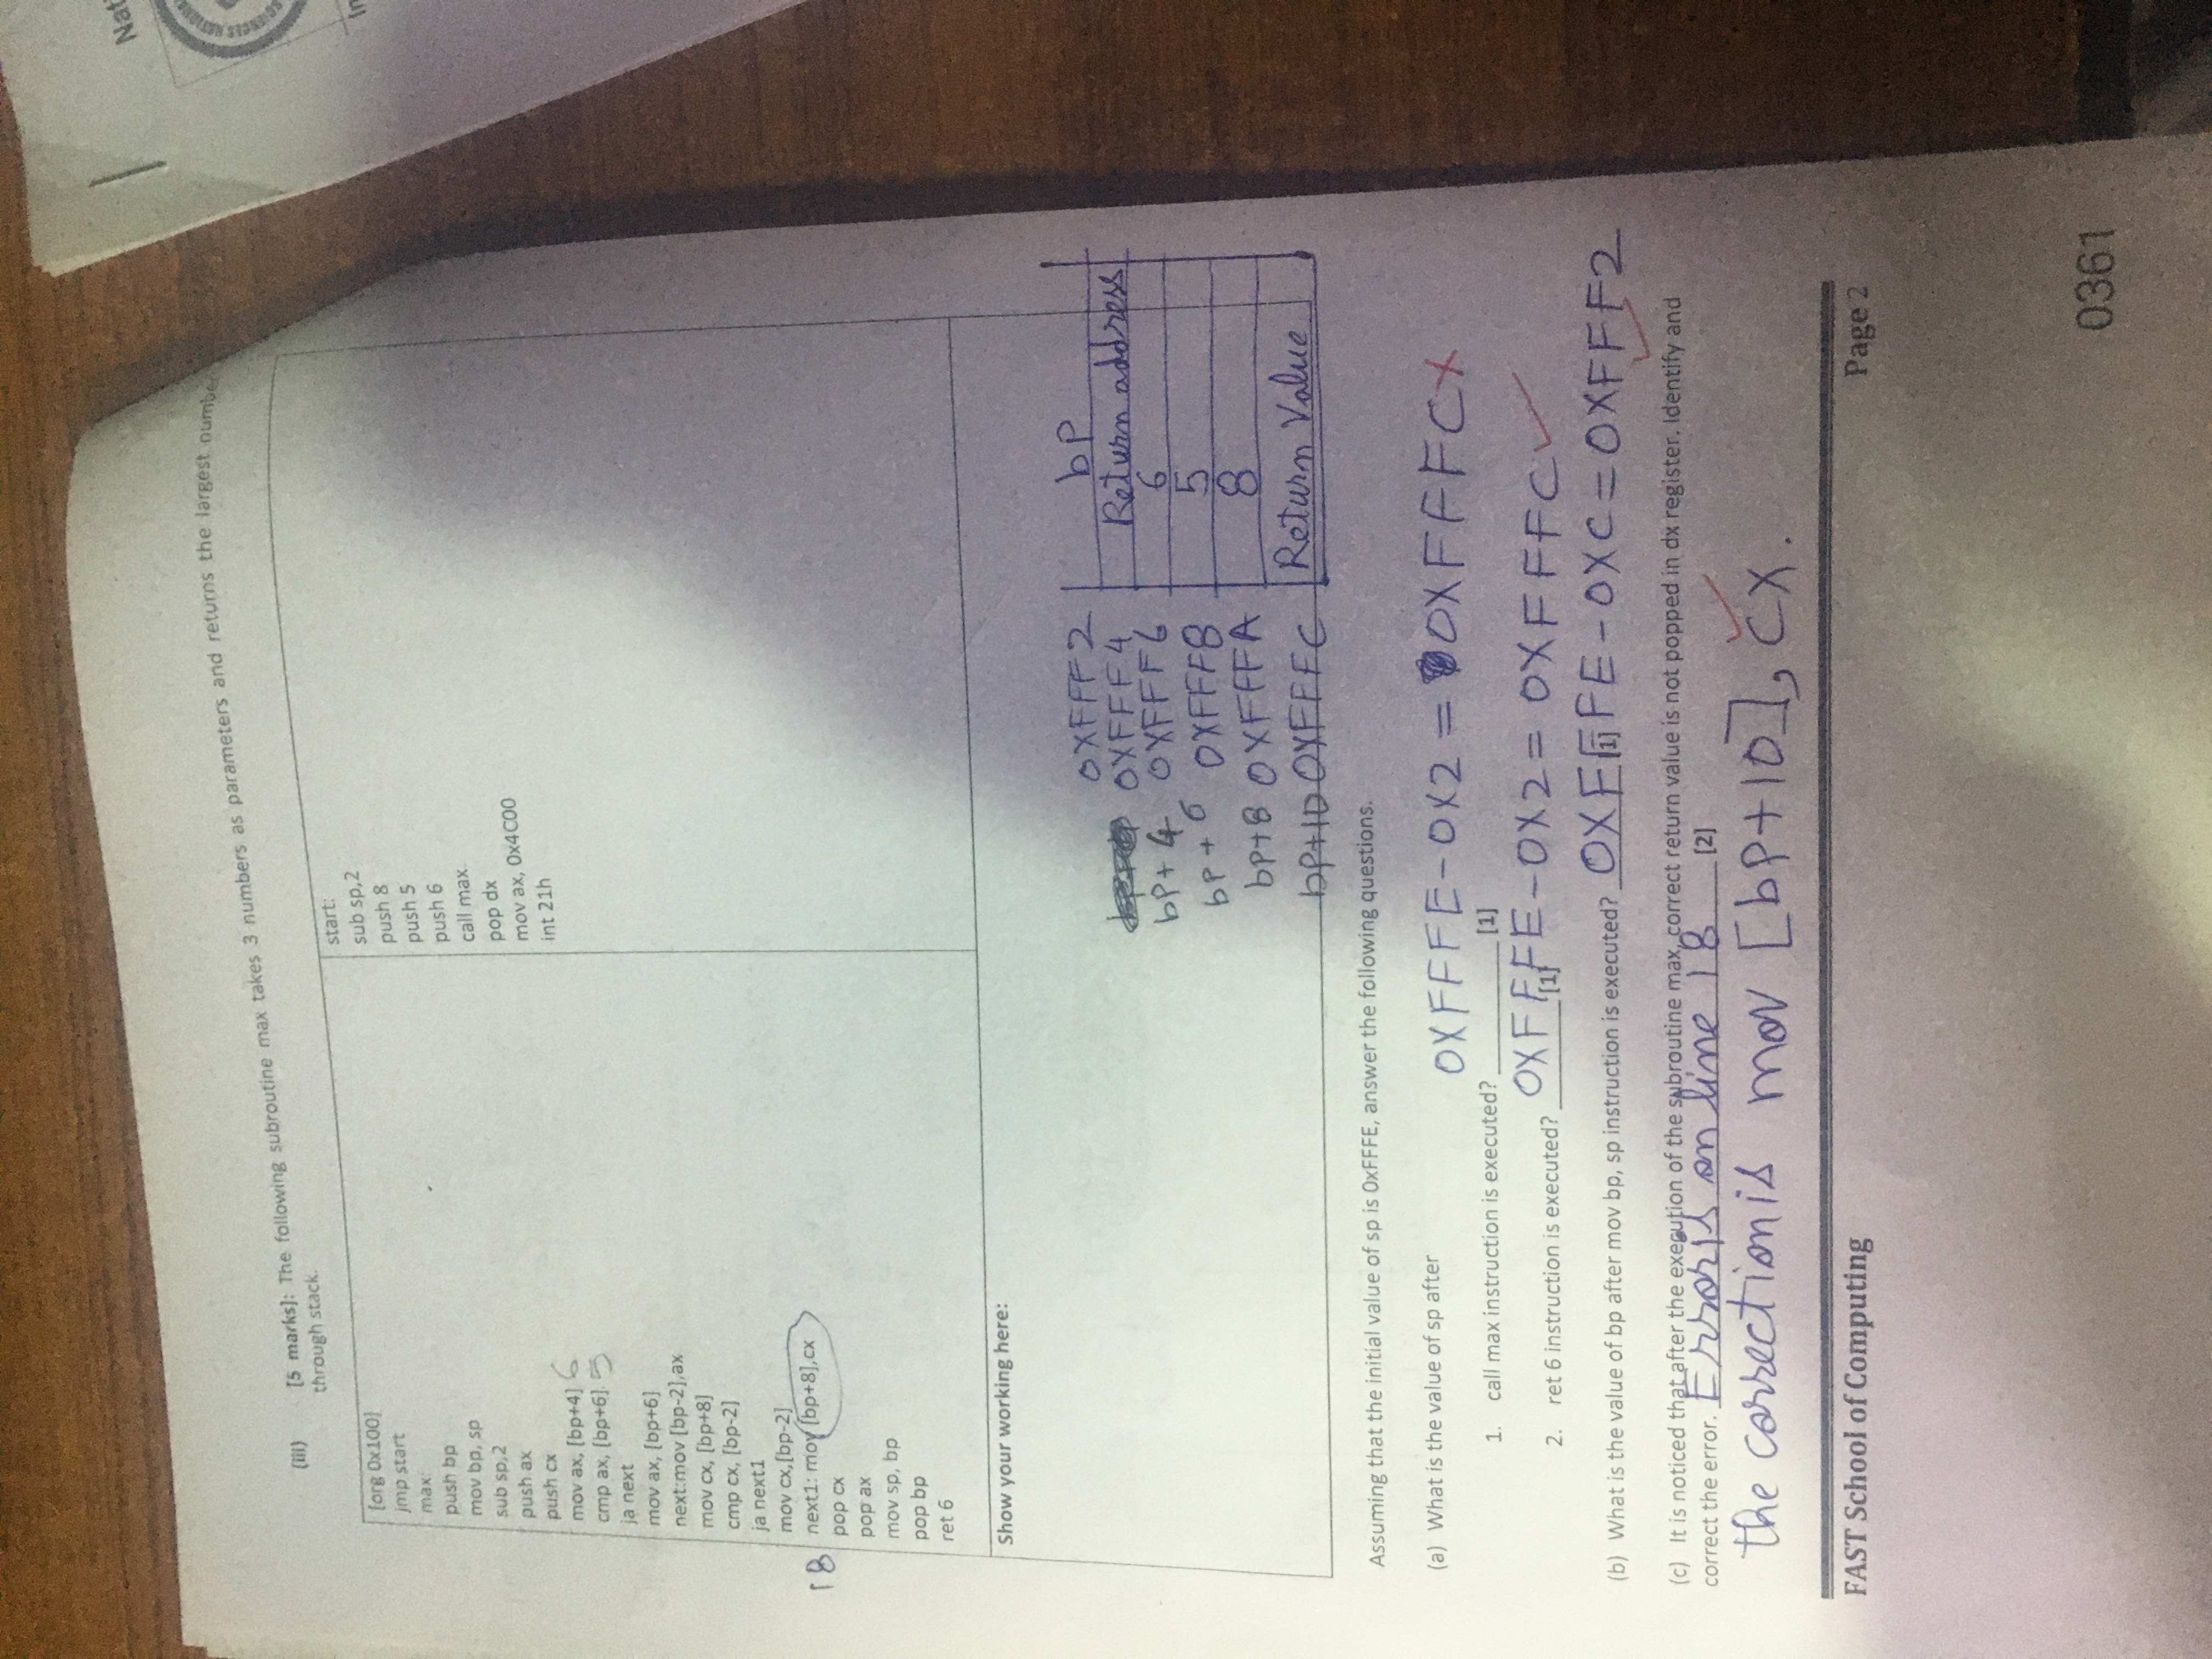 (iii) [5 marks]: The following subroutine max takes 3 numbers as parameters and returns the largest number
through stack.
[org 0x100]
jmp start
max:
push bp
mov bp, sp
sub sp,2
push ax
push cx
mov ax, [bp+4] 6
cmp ax, [bp+6] 5
ja next
mov ax, [bp+6]
next:mov [bp-2],ax
mov cx, [bp+8]
cmp cx, [bp-2]
ja next1
mov cx,[bp-2]
18 next1: mov [bp+8],cx
pop cx
pop ax
mov sp, bp
pop bp
ret 6
start:
sub sp,2
push 8
push 5
push 6
call max
pop dx
mov ax, 0x4C00
int 21h
Show your working here:
0XFFF2 bP
0XFFF4 Return address
bP+4 0XFFF6 6
bP+6 0XFFF8 5
bP+8 0XFFFA 8
bP+10 0XFFFC Return Value
Assuming that the initial value of sp is 0xFFFE, answer the following questions.
(a) What is the value of sp after
0XFFFE-0X2 = 0XFFFC
1. call max instruction is executed? [1]
2. ret 6 instruction is executed? [1] 0XFFFE-0X2 = 0XFFFC
(b) What is the value of bp after mov bp, sp instruction is executed? [1] 0XFFFE-0XC=0XFFF2
(c) It is noticed that after the execution of the subroutine max, correct return value is not popped in dx register. Identify and
correct the error. Error is on line 18 [2]
the correction is mov [bp+10], cx.
FAST School of Computing Page 2
0361
Nat
In